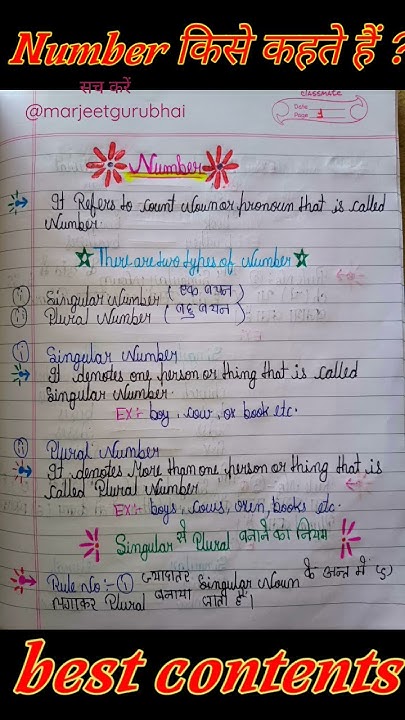 Number किसे कहते हैं ?
सच करें
@marjeetgurubhai
classmate
Date
Page 1
Number
It Refers to count Noun or pronoun that is called
Number.
There are two types of Number
(i) Singular Number (एक वचन)
(ii) Plural Number (बहु वचन)
(i) Singular Number
It denotes one person or thing that is called
Singular Number.
EX:- boy, cow, ox book etc.
(ii) Plural Number
It denotes More than one person or thing that is
called Plural Number
EX:- boys, cows, oxen, books etc.
Singular से Plural बनाने का नियम
Rule No:- (1) ज्यादातर Singular Noun के अन्त में (s)
लगाकर Plural बनाया जाता है।
best contents